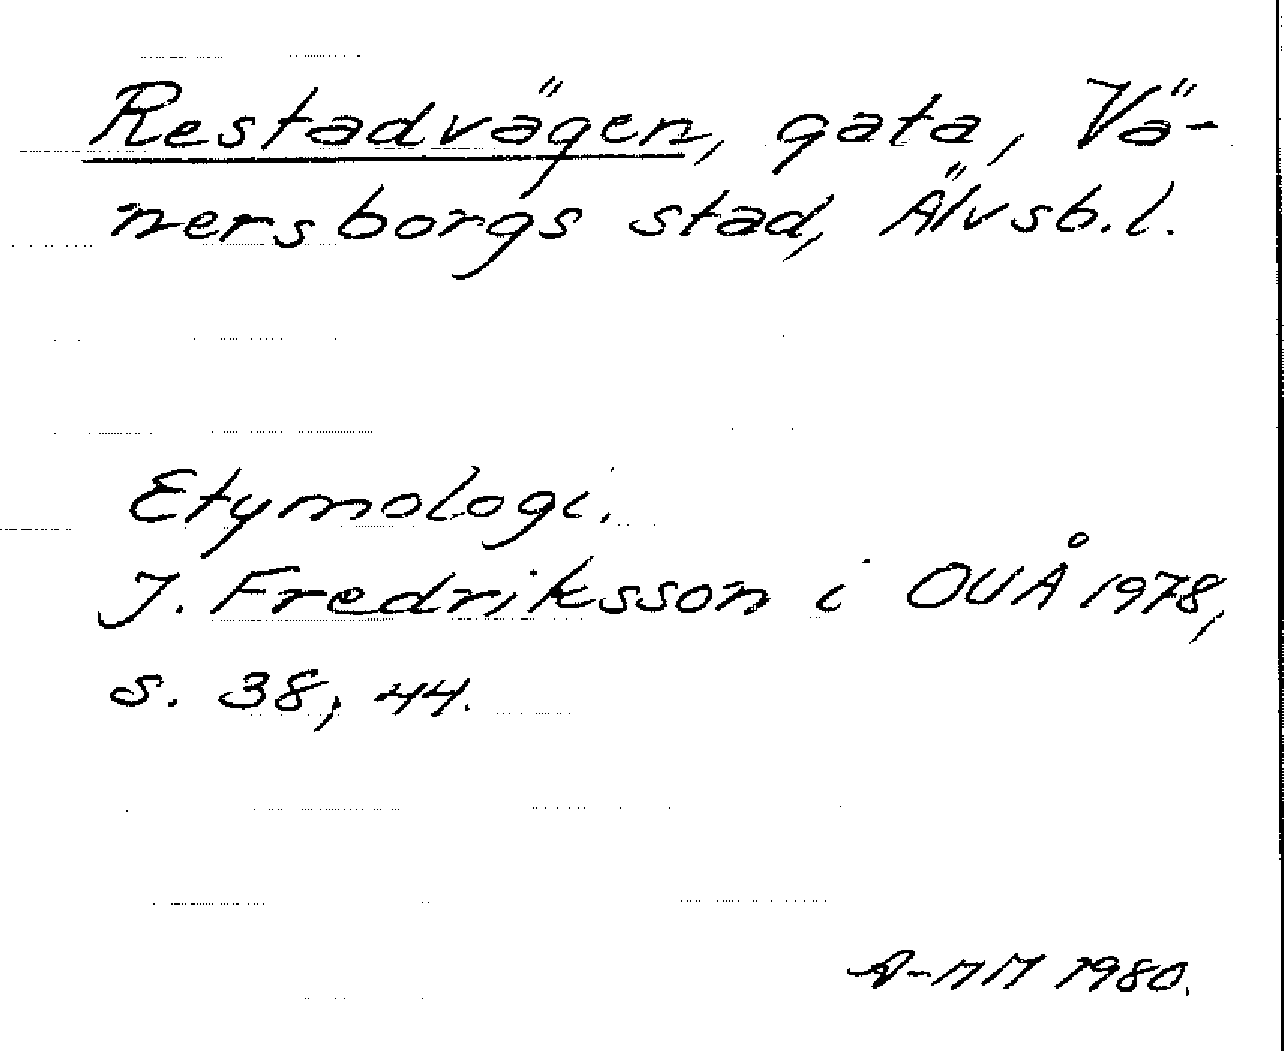 Restadvägen, gata, Vä-
nersborgs stad, Älvsb.l.
Etymologi.
J. Fredriksson i OUÅ 1978,
s. 38, 44.
A-MM 1980.